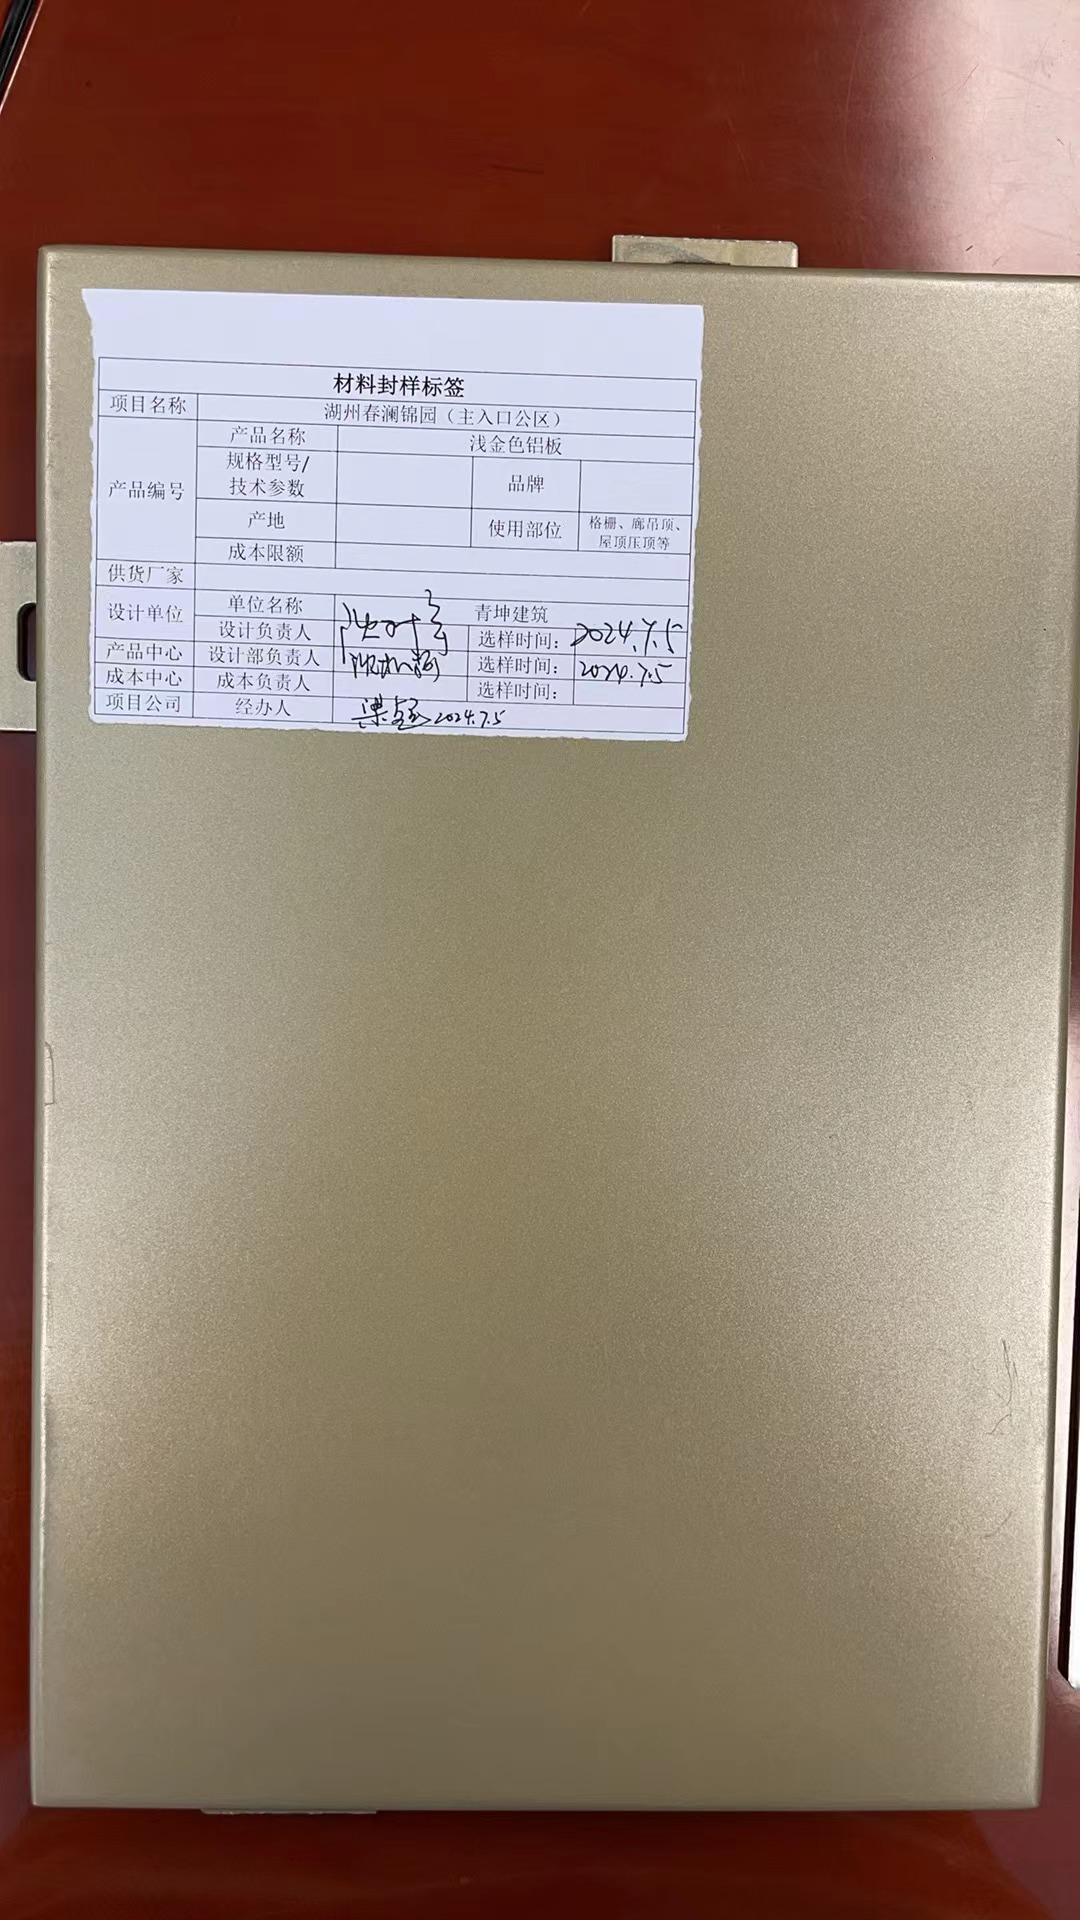 材料封样标签
项目名称 湖州春澜锦园（主入口公区）
产品编号
产品名称 浅金色铝板
规格型号/
技术参数
品牌
产地
使用部位
格栅、廊吊顶、
屋顶压顶等
成本限额
供货厂家
设计单位
单位名称 青坤建筑
设计负责人 选样时间： 2024.7.5
产品中心 设计部负责人 选样时间： 2024.7.5
成本中心 成本负责人 选样时间：
项目公司 经办人 2024.7.5